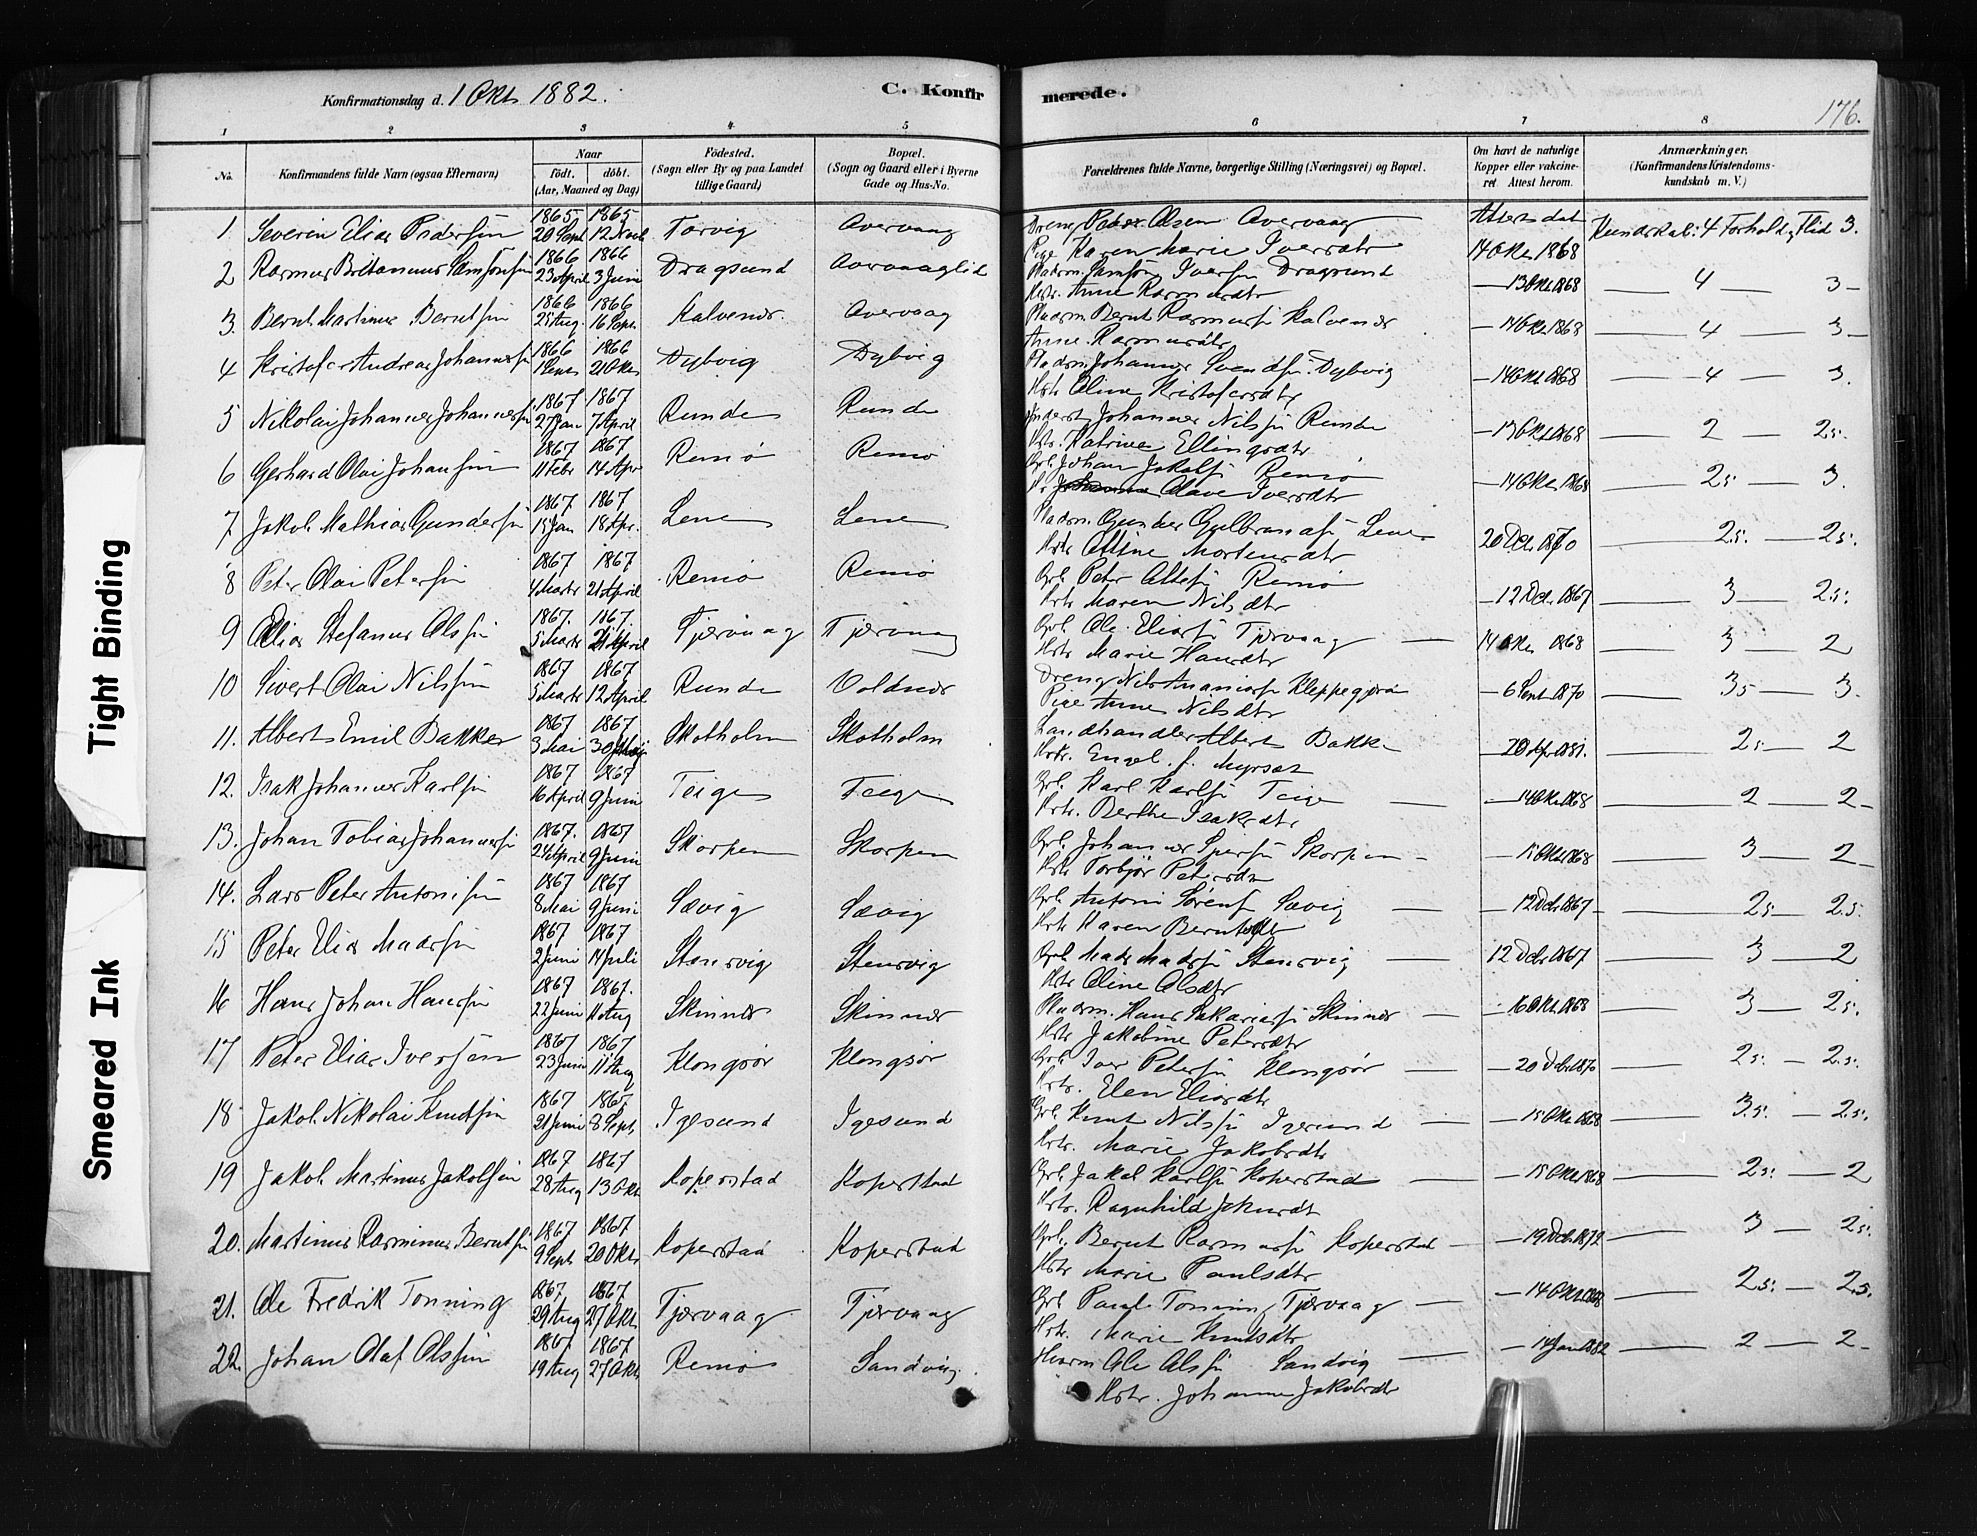 Konfirmationsdag d. 1 Okt. 1882.
C. Konfirmerede.
176.
1 2 3 4 5 6 7 8
No.
Konfirmandens fulde Navn (ogsaa Efternavn)
Naar
födt. döbt.
(Aar, Maaned og Dag)
Födested.
(Sogn eller By og paa Landet
tillige Gaard)
Bopæl.
(Sogn og Gaard eller i Byerne
Gade og Hus-No.
Forældrenes fulde Navne, borgerlige Stilling (Næringsvei) og Bopæl.
Om havt de naturlige
Kopper eller vakcine-
ret. Attest herom.
Anmærkninger.
(Konfirmandens Kristendoms-
kundskab m. V.)
1 Severin Elias Pedersen 1865 20 Sept 1865 12 Novb Torvig Avervaag Dreng Peder Olsen Avervaag Attest dat Kundskab: 4 Forhold, Flid 3.
Pige Karen Marie Iversdtr 14 Okt 1868
2 Rasmus Britanus Samsonsen 1866 23 April 1866 3 Juni Dragsund Avervaaglid Pladsm. Samson Iversen Dragsund — 13 Okt 1868 — 4 — 3 —
Hstr. Anne Rasmusdtr
3 Bernt Martinus Berntsen 1866 25 Aug. 1866 16 Sept. Kalvenes. Avervaag Pladsm Bernt Rasmussen Kalvenes — 14 Okt 1868 — 4 — 3 —
Anne Rasmusdtr
4 Kristofer Andreas Johannessen 1866 1866 21 Okt Dybvig Dybvig Pladsm. Johannes Svendsen Dybvig — 14 Okt 1868 — 4 — 3.
Hstr Oline Kristofersdtr
5 Nikolai Johannes Johannessen 1867 27 Jan 1867 7 April Runde Runde Inderst Johannes Nilsen Runde — 13 Okt 1868 — 2 — 2.5.
Hstr. Katrine Ellingsdtr
6 Gerhard Olai Johansen 1867 11 Febr 1867 14 Apr Remø Remø Gbr. Johan Jakobsen Remø — 14 Okt 1868 — 2.5 — 3.
Olave Iversdtr
7 Jakob Mathias Gundersen 1867 15 Jan 1867 18 Apr. Lene Lene Pladsm. Gunder Gulbrandsen Lene 20 Dcb. 1870 — 2.5. — 2.5.
Hstr Oline Mortensdtr
8 Peter Olai Petersen 1867 4 Marts 1867 21 April Remø Remø Gbr. Peter Remø — 12 Dcb. 1867 — 3 — 2.5.
Hstr Maren Nilsdtr
9 Elias Stefanus Olsen 1867. 5 Marts 1867. 21 April Tjervaag Tjervaag Gbr. Ole Eliassen Tjervaag — 14 Okt 1868 — 3 — 2
Hstr Marie Hansdtr
10 Sivert Olai Nilssen 1867 5 Marts 1867 12 April Runde Voldnes Dreng Nils Ananiassen Kleppegjerde — 6 Sept 1870 — 3.5 — 3.
Pige Anne Nilsdtr
11. Albert Emil Bakke 1867 3 Mai 1867 30 Skotholm Skotholm Landhandler Albert Bakke — 20 Apr 1881. — 2.5. 2
Hstr. Engel f. Myrset
12. Isak Johannes Karlsen 1867 16 April 1867 9 Juni Teige Teige Gbr. Karl Karlsen Teige — 14 Okt 1868 — 2 — 2 —
Hstr. Berthe Isaksdtr
13. Johan Tobias Johannessen 1867. 24 April 1867 9 Juni Skorpen Skorpen Gbr. Johannes Skorpen — 15 Okt 1868 — 3 — 2 —
Hstr Torbjør Petersdtr
14. Lars Peter Antonisen 1867 8 Mai 1867 9 Juni Sævig Sævig Gbr. Antoni Sørensen Sævig — 12 Dcb 1867 — 2.5. — 2.5.
Hstr Karen Berntsdtr
15 Peter Elias Madssen 1867 2 Juni 1867 14 Juli Stensvig Stensvig Gbr. Mads Madsen Stensvig — 12 Dcb 1867 — 3 — 2
Hstr Oline Olsdtr
16 Hans Johan Hansen 1867 22 Juni 1867. 11 Aug Skinnes Skinnes Pladsm. Hans Sakariassen Skinnes — 16 Okt 1868 — 3 — 2.5.
Hstr Jakobine Petersdtr
17 Peter Elias Iversen 1867 23 Juni 1867 11 Aug Klongsør Klongsør Gbr. Iver Petersen Klongsør — 20 Dcb 1870 — 2.5. — 2.5.
Hstr. Elen Eliasdtr
18 Jakob Nikolai Knudsen 1867 21 Juni 1867. 8 Sept. Igesund Igesund Gbr. Knut Nilsen Igesund — 15 Okt 1868 — 3.5. — 2.5.
Hstr. Marie Jakobsdtr
19 Jakob Martinus Jakobsen 1867 28 Aug 1867 13 Okt. Koperstad Koperstad Gbr. Jakob Karlsen Koperstad — 15 Okt 1868 — 2.5. — 2
Hstr. Ragnhild
20. Martinus Rasminus Berntsen 1867 9 Sept 1867 20 Okt. Koperstad Koperstad Gbr. Bernt Rasmussen Koperstad — 19 Dcb. 1872 — 3 — 2.5.
Hstr Marie Paulsdtr
21. Ole Fredrik Tonning 1867 29 Aug 1867 27 Okt. Tjervaag Tjervaag Gbr. Paul Tonning Tjervaag — 14 Okt 1868 — 2.5. — 2.5.
Hstr. Marie Knudsdtr
22. Johan Olaf Olssen 1867 19 Aug 1867 27 Okt. Remø Sandvig. Husm Ole Olsen Sandvig — 14 Jan 1882 — 2 — 2 —
Hstr. Johanne Jakobsdtr
Tight Binding
Smeared Ink